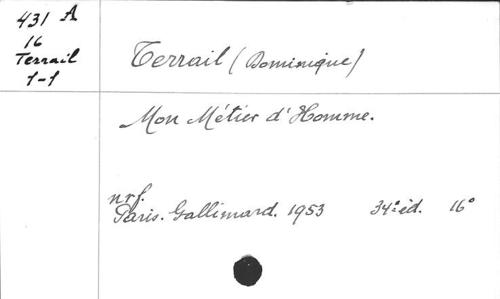 431 A
16
Terrail
1-1
Terrail (Dominique)
Mon Métier d'Homme.
nrf.
Paris. Gallimard. 1953 34°éd. 16°